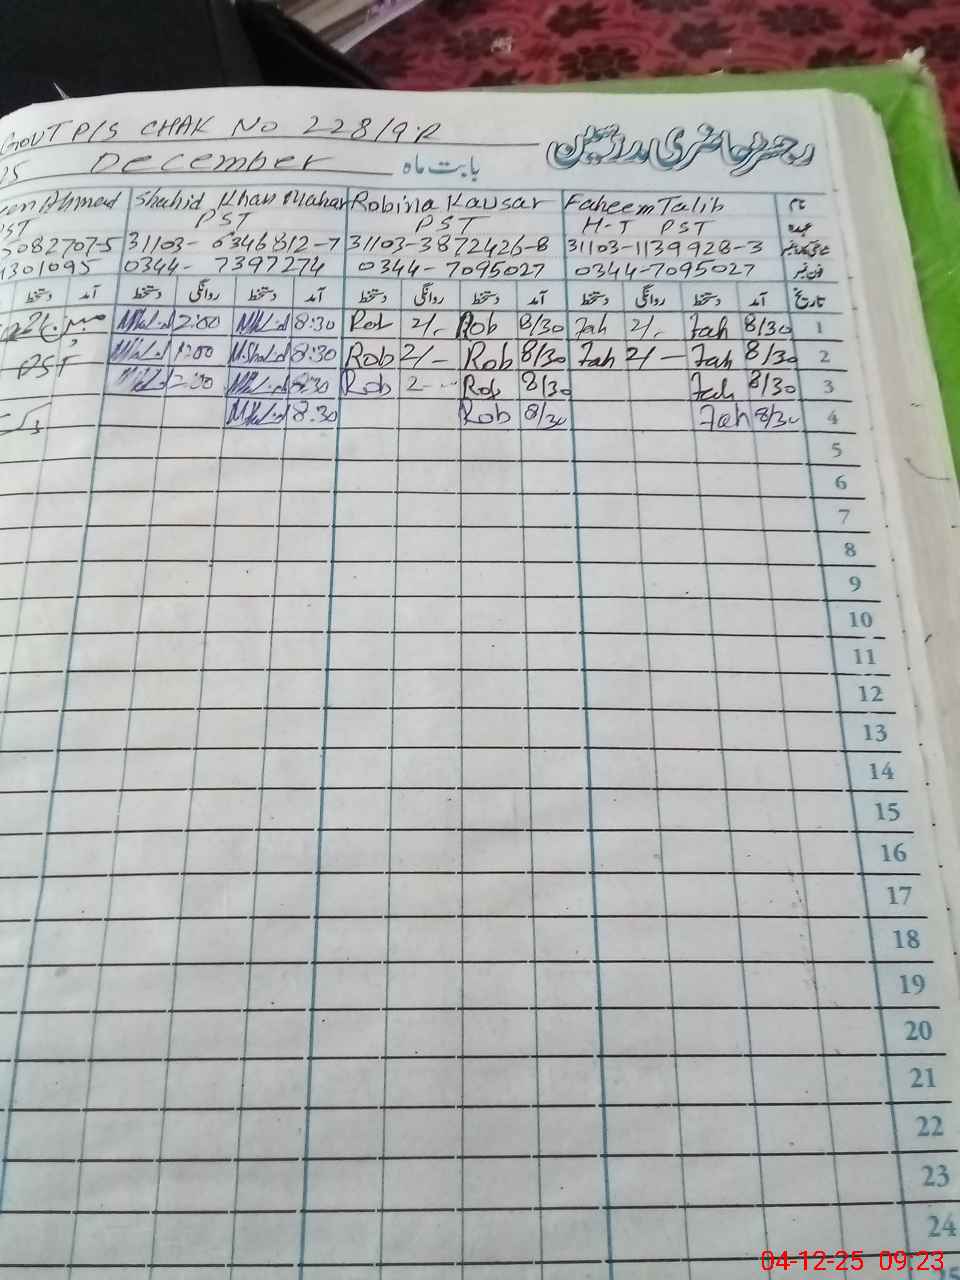 GOVT P/S CHAK No 228/9.R
رجسٹر حاضری مدرسین
25 December بابت ماه
Ahmed Shahid Khan Mahar Robina Kausar Faheem Talib نام
PST PST PST H-T PST عہدہ
5082707-5 31103-6346812-7 31103-3872426-8 31103-1139928-3
4301095 0344-7397274 0344-7095027 0344-7095027 فون نمبر
دستخط آمد دستخط روانگی دستخط آمد دستخط روانگی دستخط آمد دستخط روانگی دستخط آمد تاریخ
2:00 8:30 Rob 2/- Rob 8/30 Fah 2/- Fah 8/30 1
PST 2:00 8:30 Rob 2/- Rob 8/30 Fah 2/- Fah 8/30 2
2:00 8:30 Rob 2-- Rob 8/30 Fah 8/30 3
8:30 Rob 8/30 Fah 8/30 4
5
6
7
8
9
10
11
12
13
14
15
16
17
18
19
20
21
22
23
24
25
04-12-25 09:23